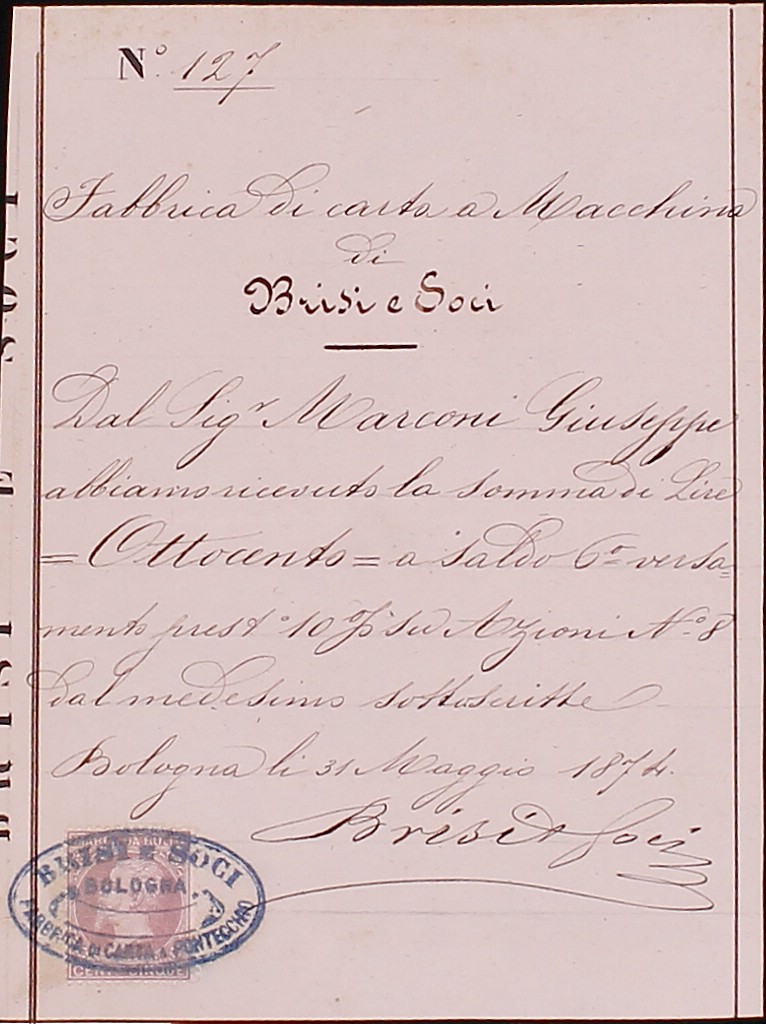 N.º 127
Fabbrica di carta a Macchina
di
Brisi e Soci
Dal Sigr Marconi Giuseppe
abbiamo ricevuto la somma di Lire
= Ottocento = a saldo 6º versa=
mento prestº 10 % su Azioni Nº 8
dal medesimo sottoscritte
Bologna li 31 Maggio 1874.
Brisi e Soci
BRISI E SOCI
BOLOGNA
FABBRICA DI CARTA A PONTECCHIO
CENT. CINQUE
BRISI E SOCI